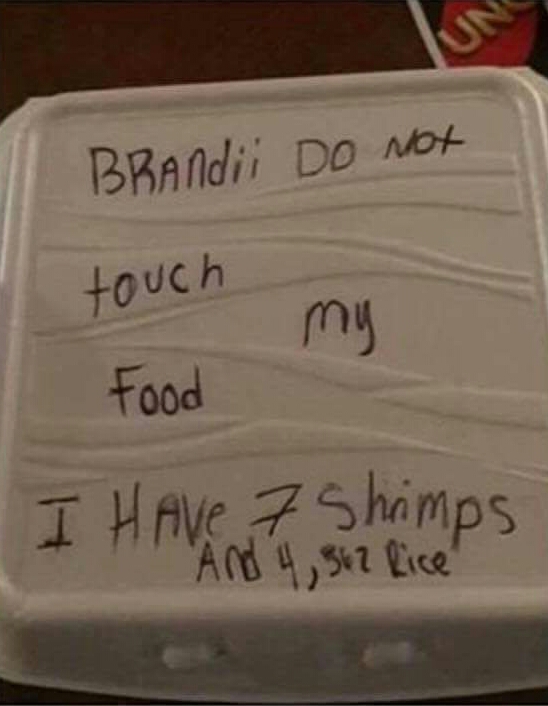 UNO
BRANdii DO NOt
touch
my
Food
I HAVe 7 Shrimps
And 4,362 Rice